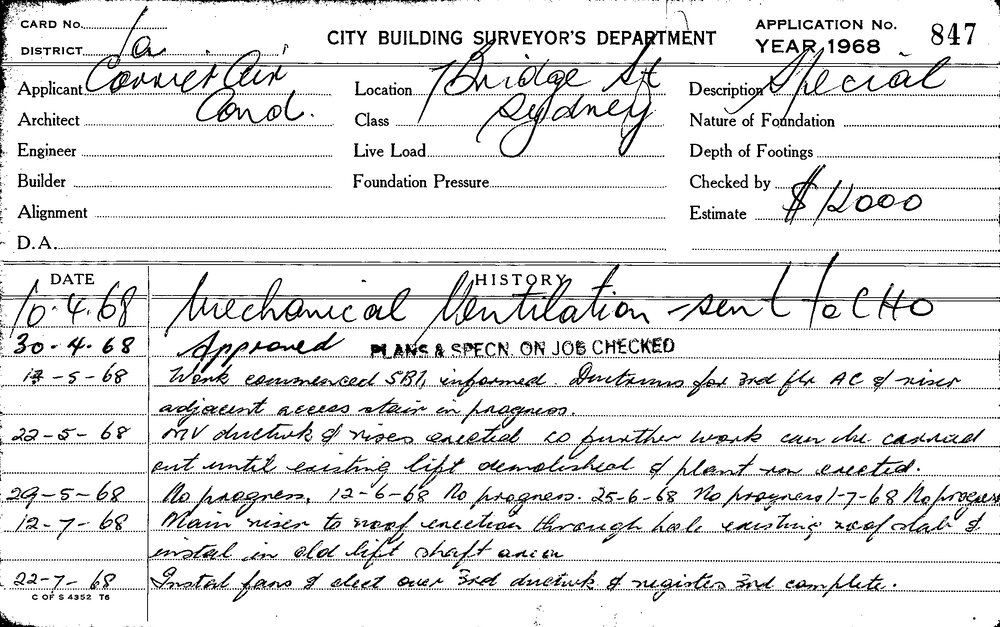 CARD No.
DISTRICT 1a
CITY BUILDING SURVEYOR'S DEPARTMENT
APPLICATION No. 847
YEAR 1968
Applicant Carrier Air
Cond.
Location 7 Bridge St
Sydney
Description Special
Architect
Class
Nature of Foundation
Engineer
Live Load
Depth of Footings
Builder
Foundation Pressure
Checked by
Alignment
Estimate $12000
D.A.
DATE HISTORY
10.4.68 Mechanical Ventilation - sent to CHO
30-4-68 Approved PLANS & SPECN. ON JOB CHECKED
17-5-68 Work commenced SBI, informed. Ductruns for 3rd flr AC & riser
adjacent access stair in progress.
22-5-68 MV ductwk & rises erected no further work can be carried
out until existing lift demolished & plant rm erected.
29-5-68 No progress, 12-6-68 No progress. 25-6-68 No progress 1-7-68 No progress
12-7-68 Main riser to roof erection through hole existing roof slab &
instal in old lift shaft area
22-7-68 Instal fans & elect over 3rd ductwk & registers 3rd complete.
C OF S 4352 T6